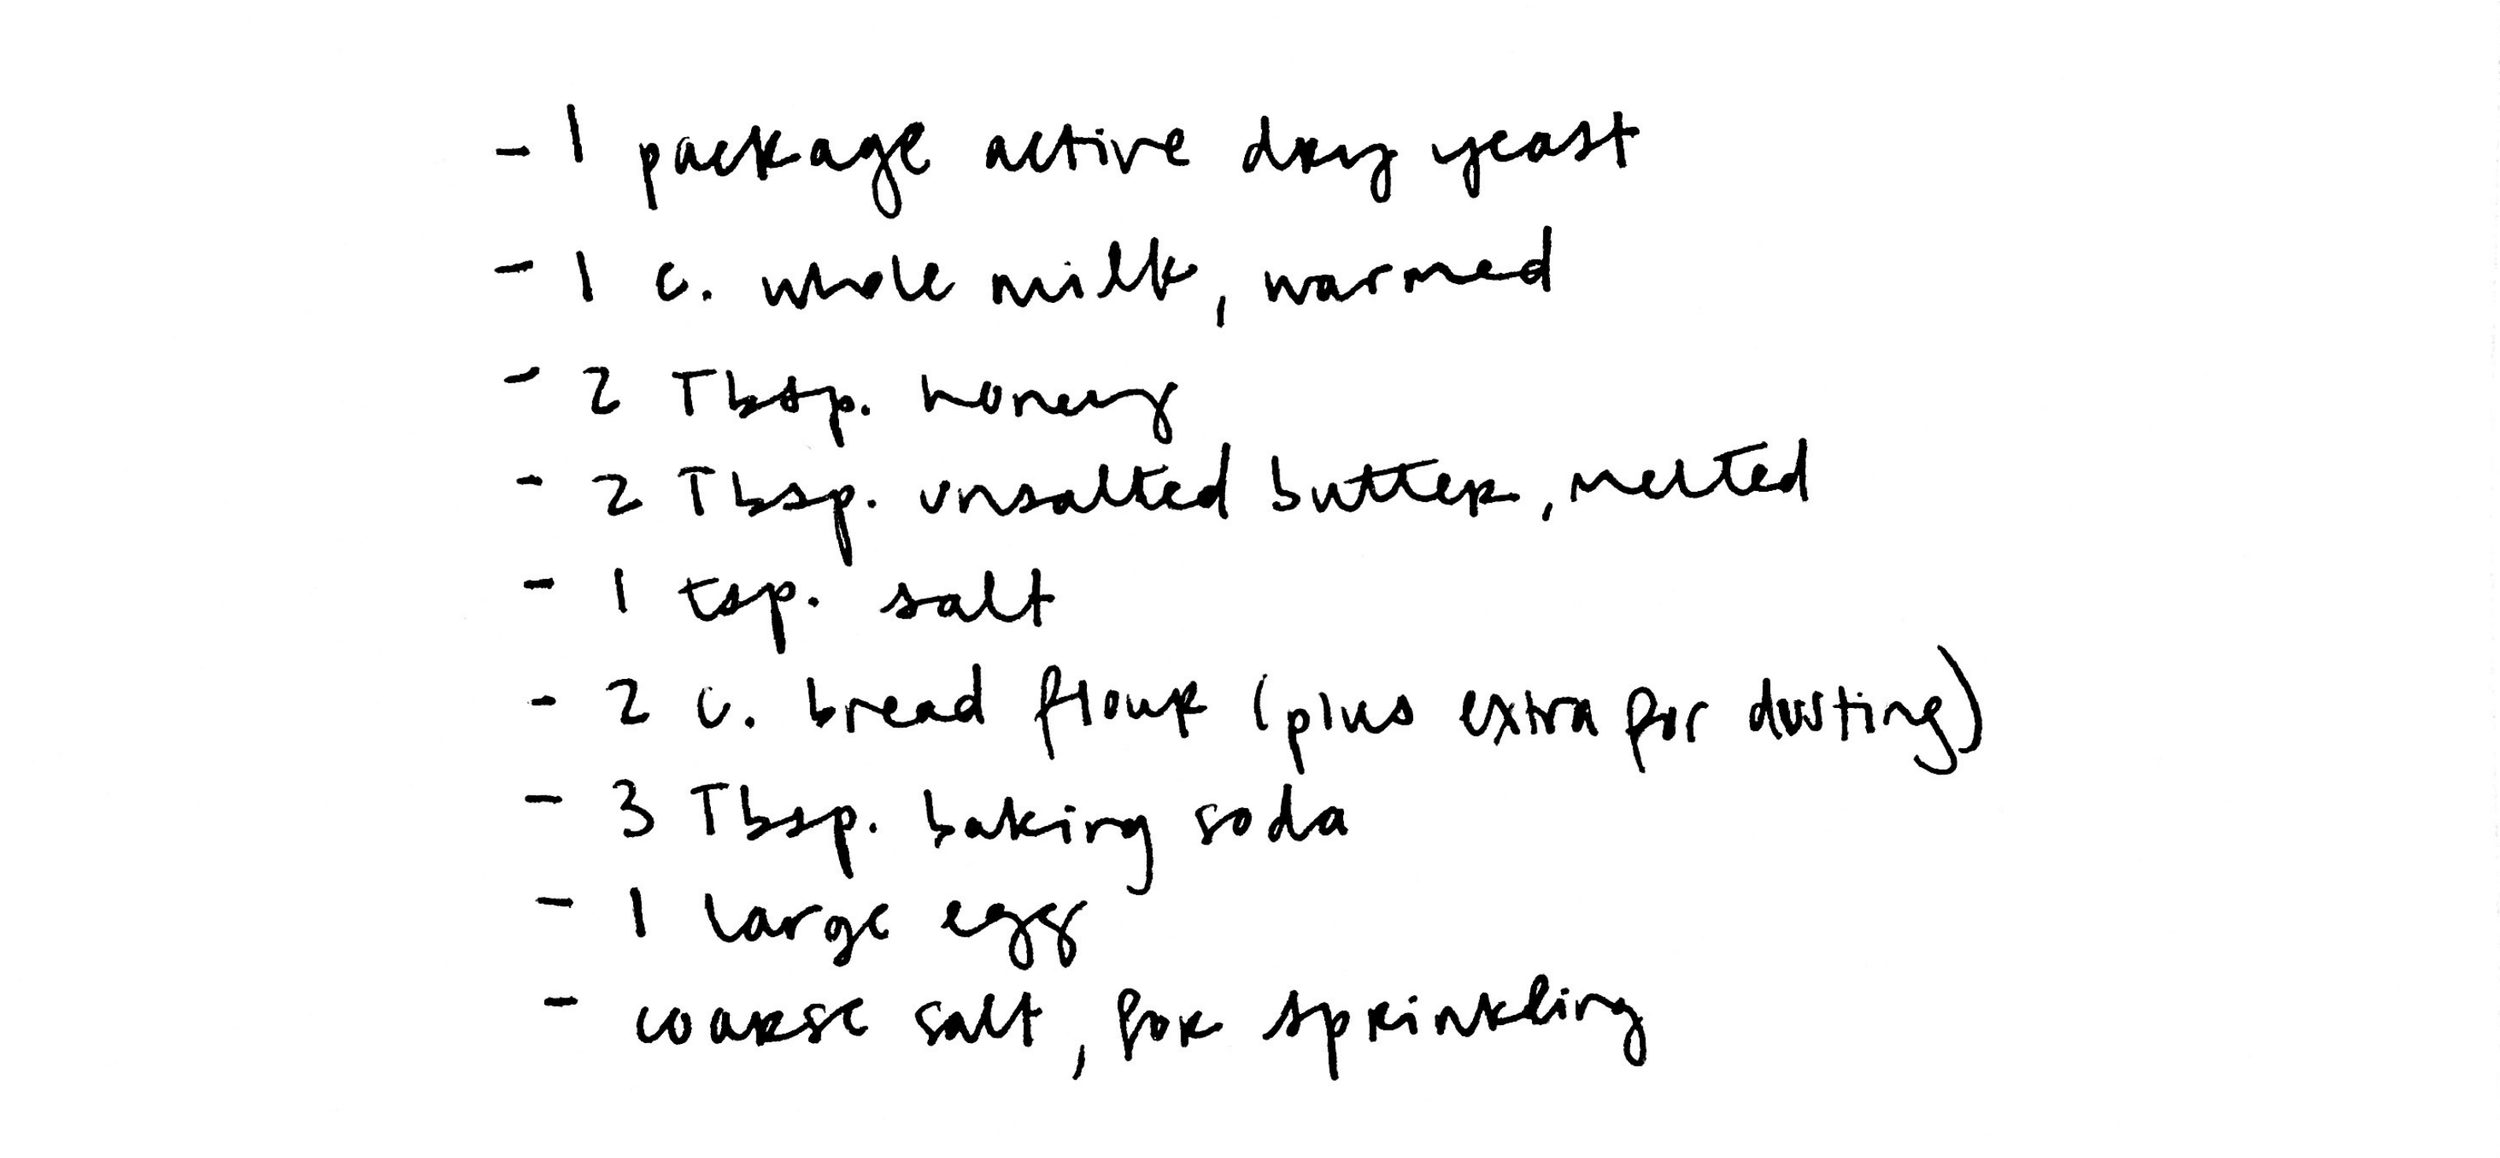 - 1 package active dry yeast
- 1 c. whole milk, warmed
- 2 Tbsp. honey
- 2 Tbsp. unsalted butter, melted
- 1 tsp. salt
- 2 c. bread flour (plus extra for dusting)
- 3 Tbsp. baking soda
- 1 large egg
- coarse salt, for sprinkling